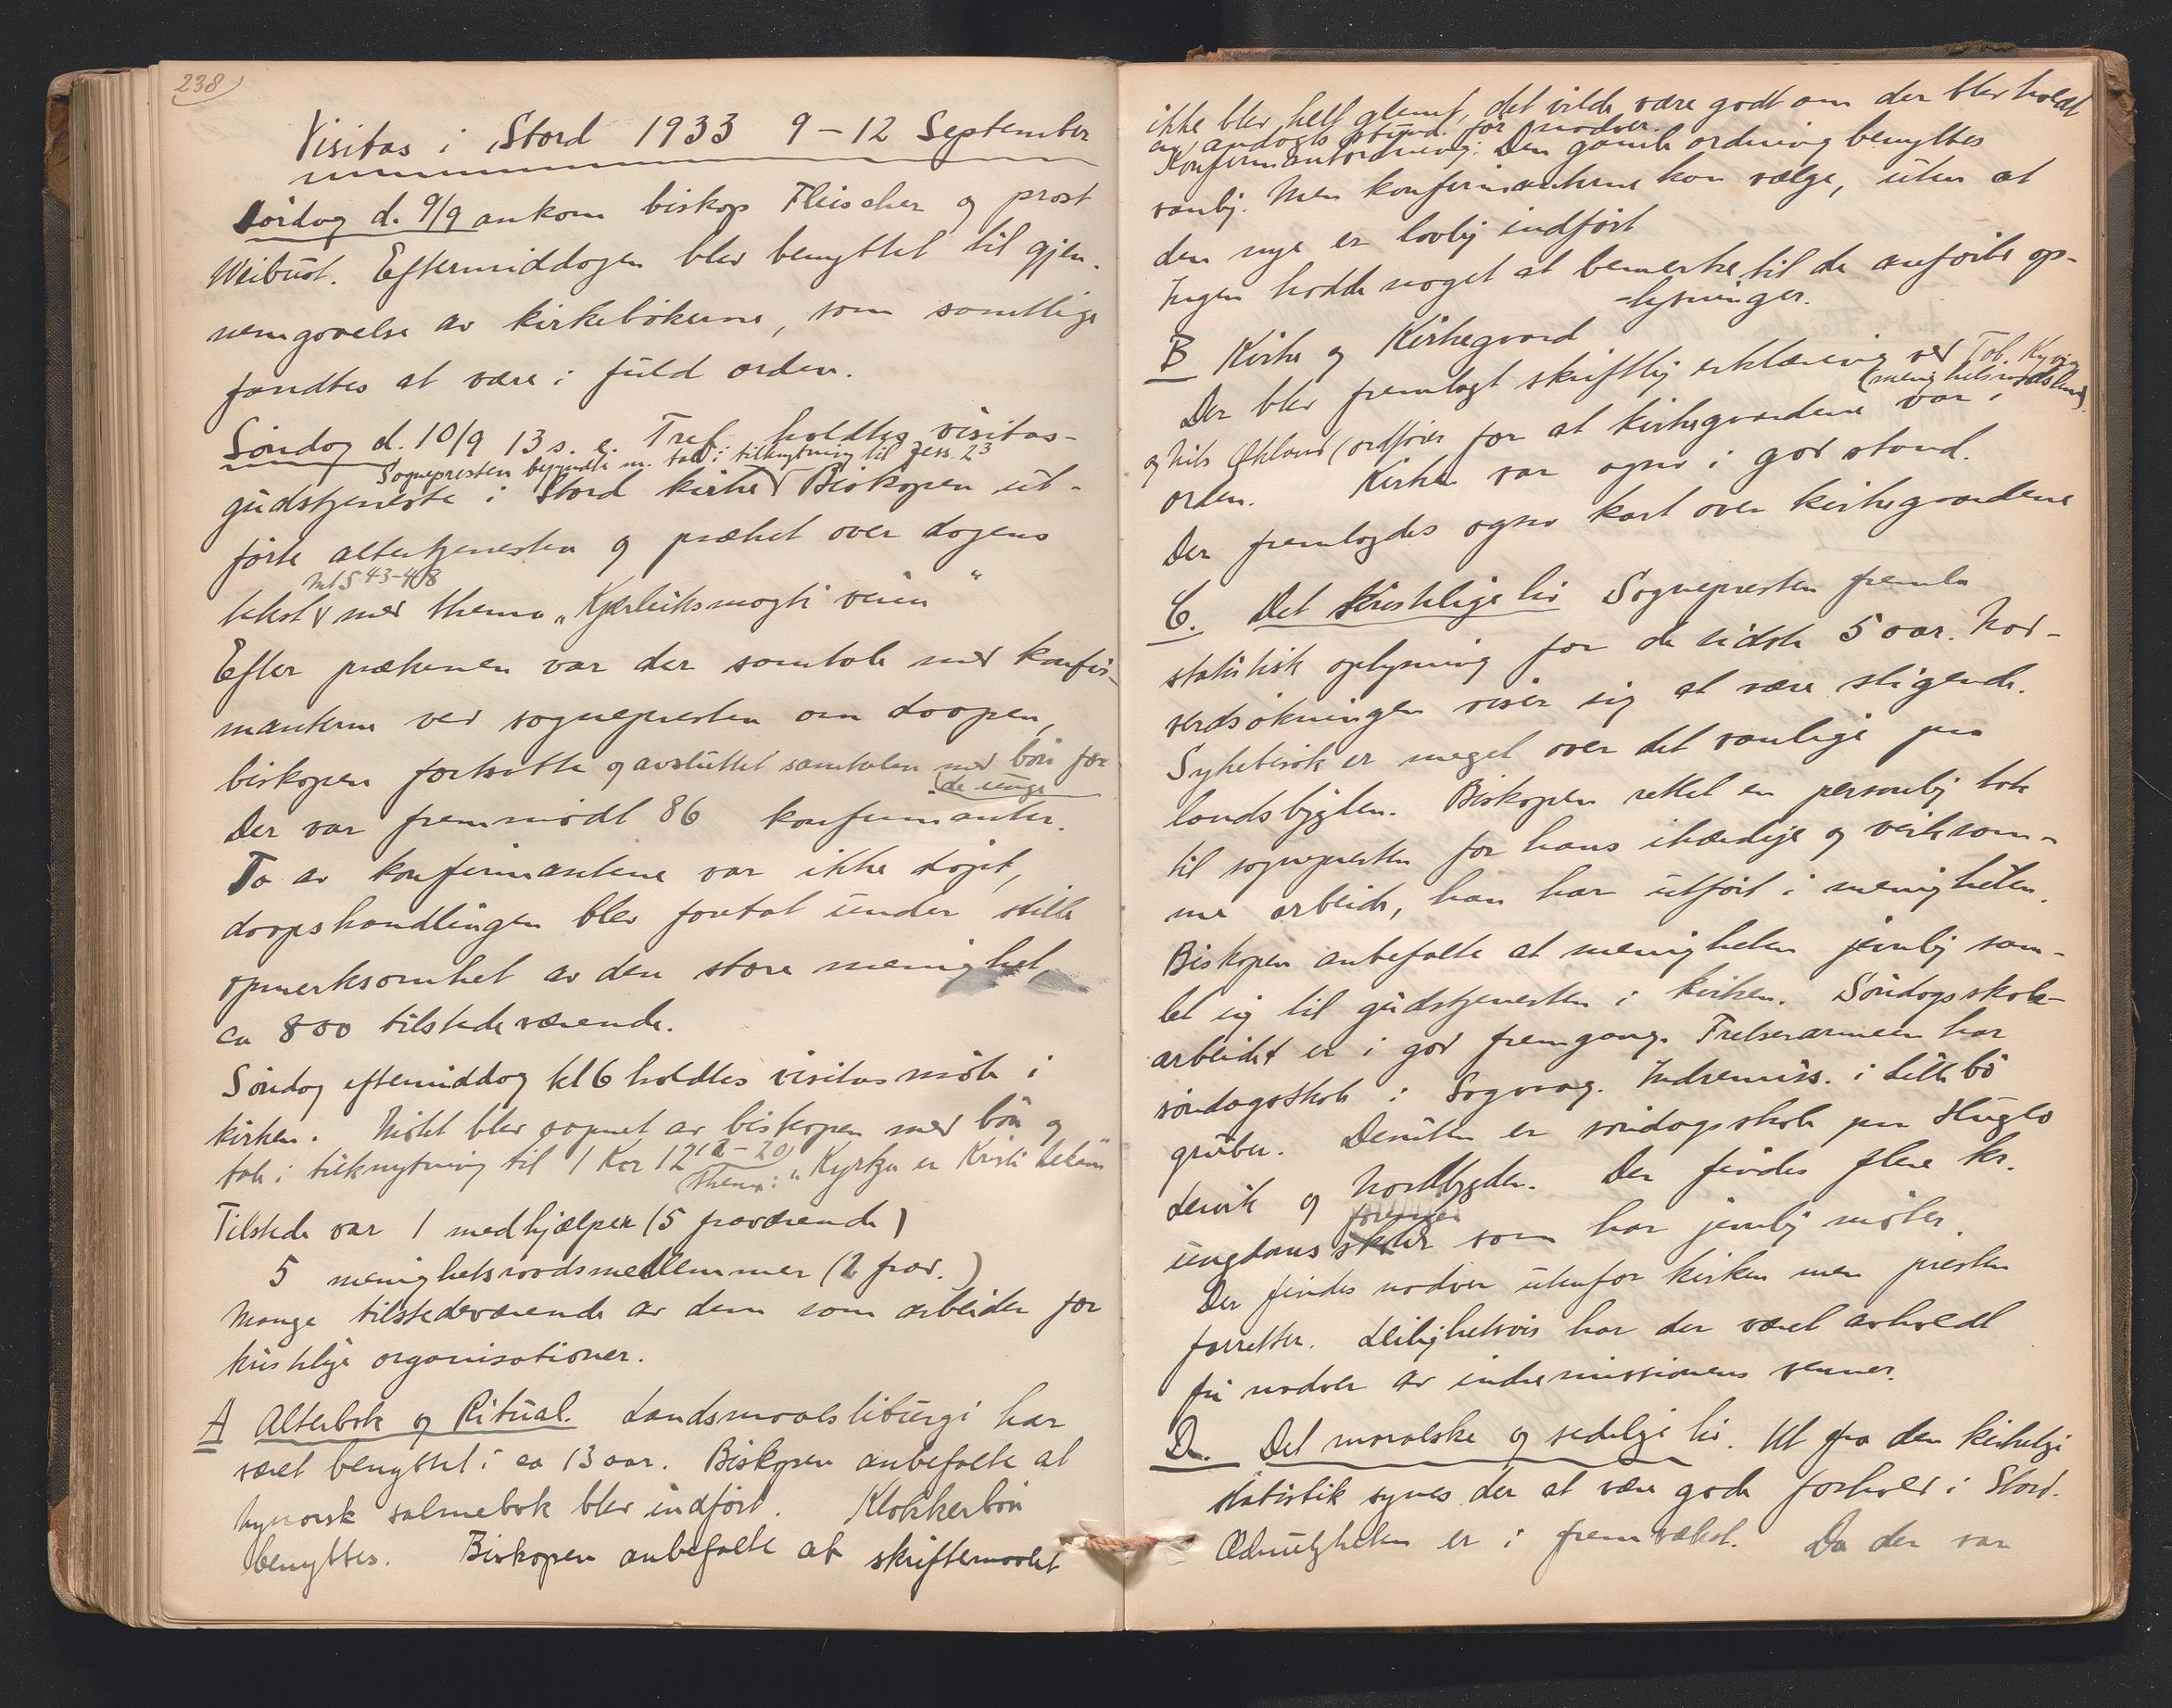 238
Visitas i Stord 1933 9–12 September
Lördag d. 9/9 ankom biskop Fleischer og prost
Weibust. Eftermiddagen blev benyttet til gjen-
nemgaaelse av kirkebökerne, som samtlige
fandtes at være i fuld orden.
Söndag d. 10/9 13 s. e. Tref. holdtes visitas-
Sognepresten begyndte m. tale i tilknytning til Jess. 2³
gudstjeneste i Stord kirke Biskopen ut-
förte altertjenesten og prækte over dagens
Mt 5 43-48
tekst med thema „Kjærleiksmagti veien“
Efter prækenen var der samtale med konfir-
manterne ved sognepresten om daapen,
biskopen fortsatte og avsluttet samtalen med bön for
de unge
Der var fremmödt 86 konfirmanter.
To av konfirmantene var ikke döpt,
daapshandlingen blev foretat under stille
opmerksomhet av den store menighet,
ca 800 tilstedeværende.
Söndag eftermiddag kl 6 holdtes visitasmöte i
kirken. Mötet blev aapnet av biskopen med bön og
tale i tilknytning til 1 Kor 12 12–20
Thema: „Kyrkja er Kristi lekam“
Tilstede var 1 medhjælper (5 fraværende)
5 menighetsraadsmedlemmer (2 frav.)
Mange tilstedeværende av dem som arbeider for
kristelige organisationer.
A Alterbok og Ritual. Landsmaalsliturgi har
været benyttet i ca 13 aar. Biskopen anbefalte at
Nynorsk salmebok blev indfört. Klokkerbön
benyttes. Biskopen anbefalte at skriftemaalet
ikke blev helt glemt, det vilde være godt om der blev holdt
en andagts stund. för nadver.
Konfirmantordning: Den gamle ordning benyttes
vanlig. Men konfirmanterne kan vælge, uten at
den nye er lovlig indfört
Ingen hadde noget at bemerke til de anförte op-
-lysninger.
B Kirke og Kirkegaard
Der blev fremlagt skriftlig erklæring ved Tob. Kyvig
(menighetsraadsform)
og Nils Økland (ordförer for at kirkegaardene var i
orden. Kirken var ogsaa i god stand.
Der fremlagdes ogsaa kart over kirkegaardene
C. Det kristelige liv Sognepresten fremla
statistisk oplysning for de sidste 5 aar. Nad-
verdsökningen viser sig at være stigende.
Sykebesök er meget over det vanlige paa
landsbygden. Biskopen rettet en personlig tak
til sognepresten for hans ihærdige og virksom-
me arbeide, han har utfört i menigheten.
Biskopen anbefalte at menigheten jevnlig sam-
let sig til gudstjenesten i kirken. Söndagsskole-
arbeidet er i god fremgang. Frelsesarmeen har
söndagsskole i Sagvaag. Indremiss. i Litlebö
gruber. Desuten er söndagsskole paa Huglo
Lervik og Nordbygden. Der findes flere kr.
foreninger
ungdoms skoler som har jevnlig möter.
Der findes nadver utenfor kirken men presten
forretter. Leilighetsvis har der været avholdt
fri nadver av indremissionens venner.
D. Det moralske og sedelige liv. Ut fra den kirkelige
statistik synes der at være gode forhold i Stord.
Ædrueligheten er i fremvækst. Da der var